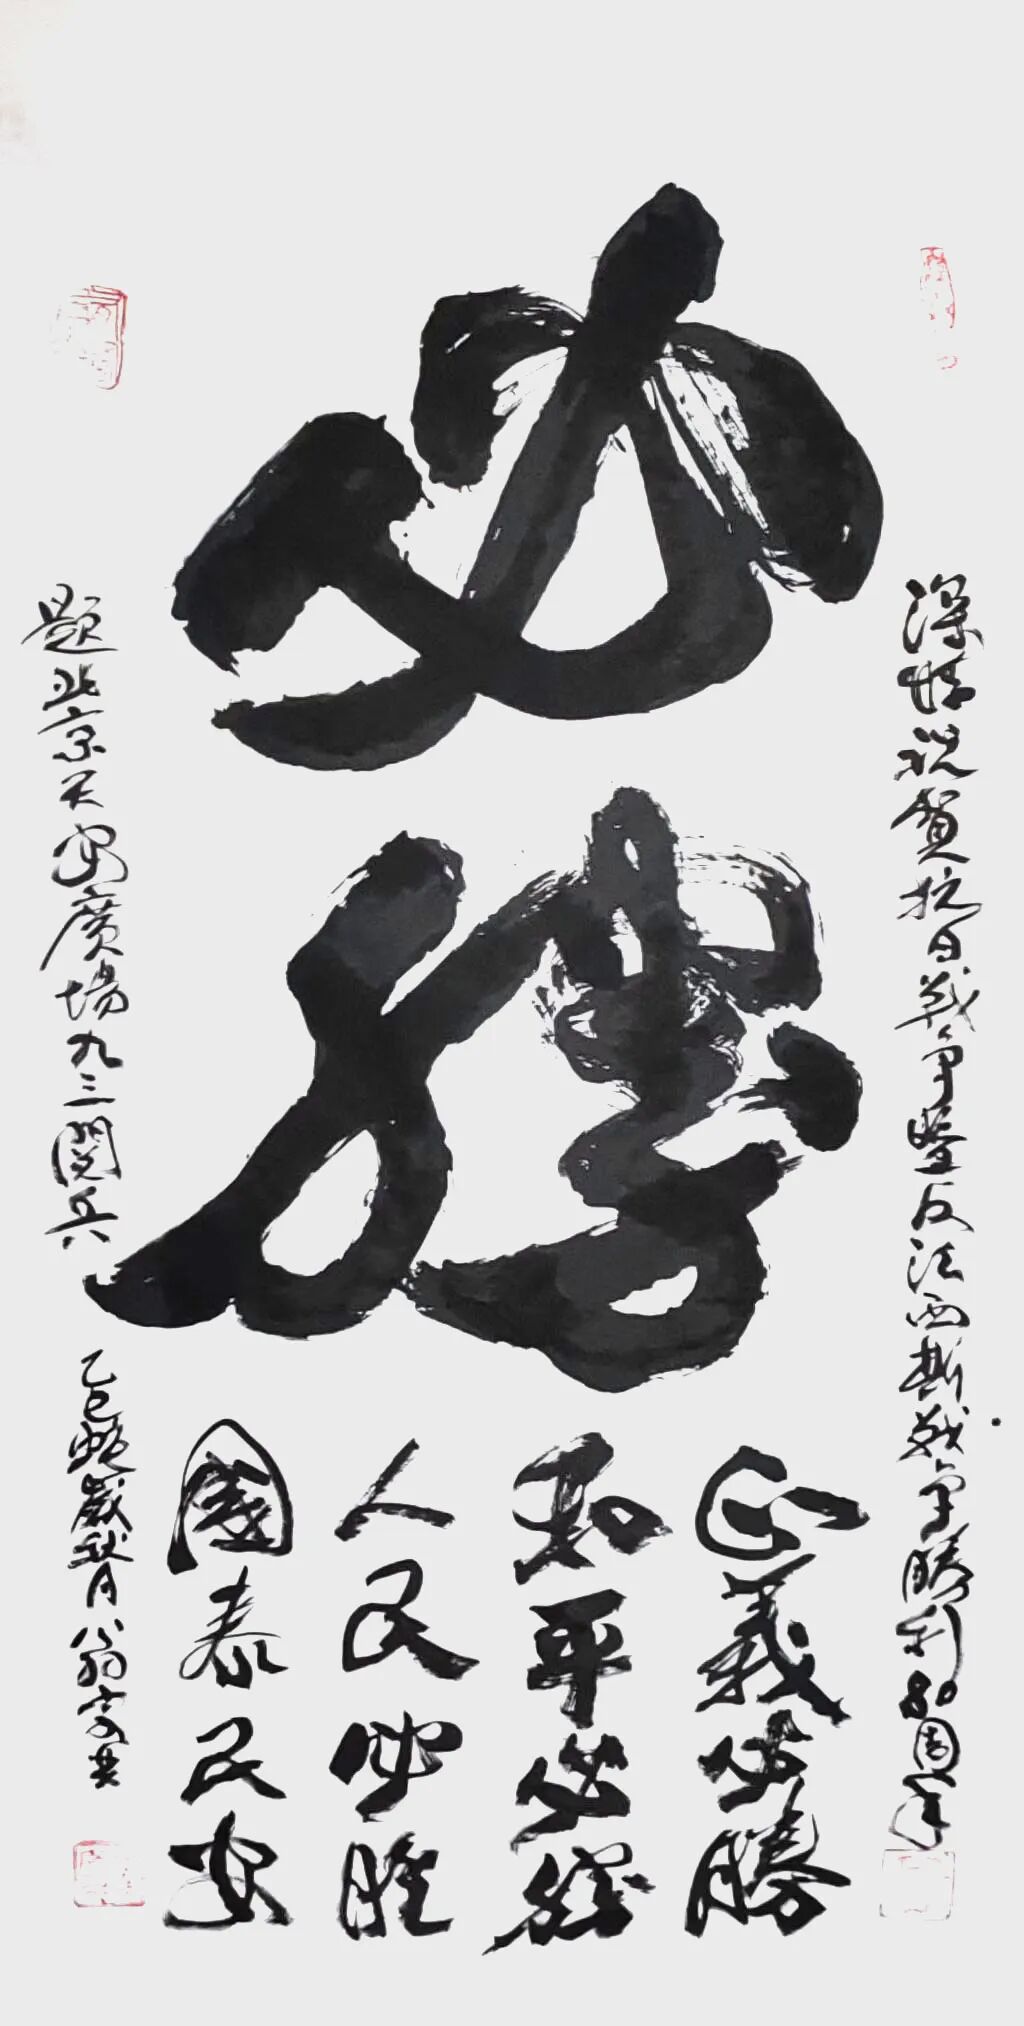 深情祝賀抗日战争暨反法西斯战争勝利80周年
必勝
正義必勝
和平必勝
人民必胜
國泰民安
題北京天安廣場九三閱兵
乙巳蛇歲秋月